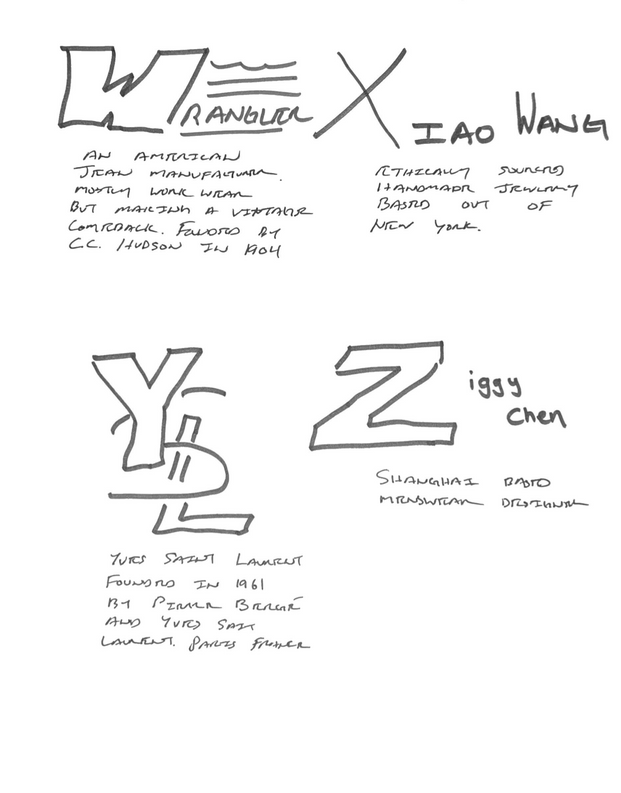 WRANGLER
AN AMERICAN
JEAN MANUFACTURER.
MOSTLY WORK WEAR
BUT MAKING A VINTAGE
COMEBACK. FOUNDED BY
C.C. HUDSON IN 1904
XIAO WANG
ETHICALLY SOURCED
HANDMADE JEWELRY
BASED OUT OF
NEW YORK.
YSL
YVES SAINT LAURENT
FOUNDED IN 1961
BY PIERRE BERGÉ
AND YVES SAINT
LAURENT. PARIS FRANCE
Ziggy
Chen
SHANGHAI BASED
MENSWEAR DESIGNER